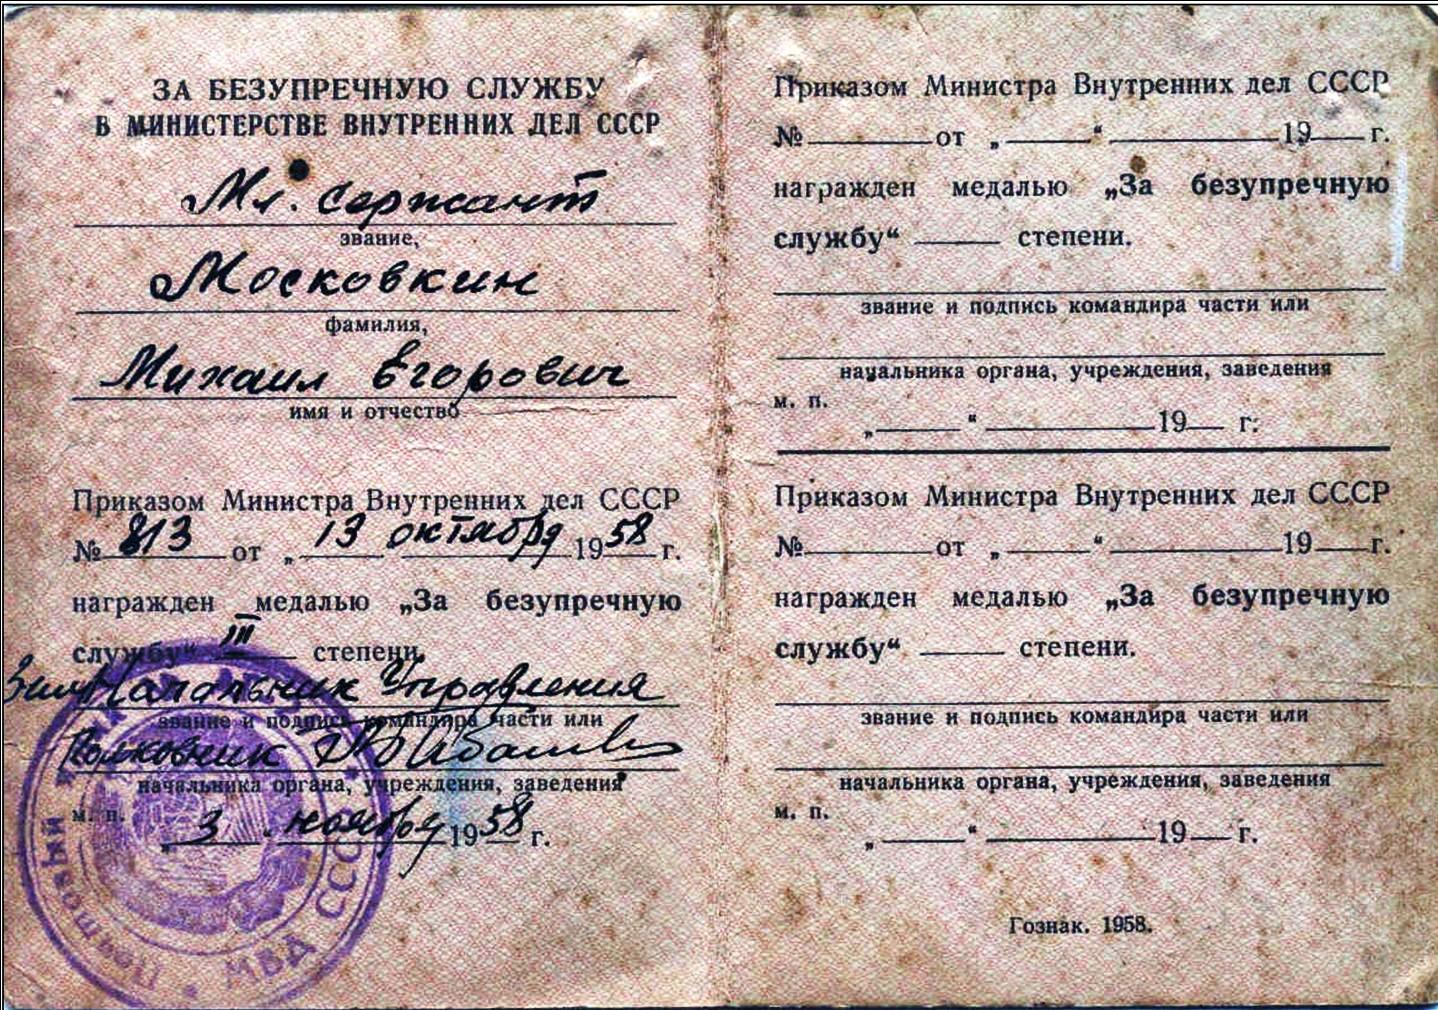 ЗА БЕЗУПРЕЧНУЮ СЛУЖБУ
В МИНИСТЕРСТВЕ ВНУТРЕННИХ ДЕЛ СССР
Мл. сержант
звание,
Московкин
фамилия,
Михаил Егорович
имя и отчество
Приказом Министра Внутренних дел СССР
№ 813 от „ 13 октября 1958 г.
награжден медалью „За безупречную
службу“ III степени.
Зам Начальник Управления
звание и подпись командира части или
Полковник
начальника органа, учреждения, заведения
м. п.
„ 3 ноября 1958 г.
МВД СССР
Приказом Министра Внутренних дел СССР
№ от „ “ 19 г.
награжден медалью „За безупречную
службу“ степени.
звание и подпись командира части или
начальника органа, учреждения, заведения
м. п.
„ “ 19 г.
Приказом Министра Внутренних дел СССР
№ от „ “ 19 г.
награжден медалью „За безупречную
службу“ степени.
звание и подпись командира части или
начальника органа, учреждения, заведения
м. п.
„ “ 19 г.
Гознак. 1958.